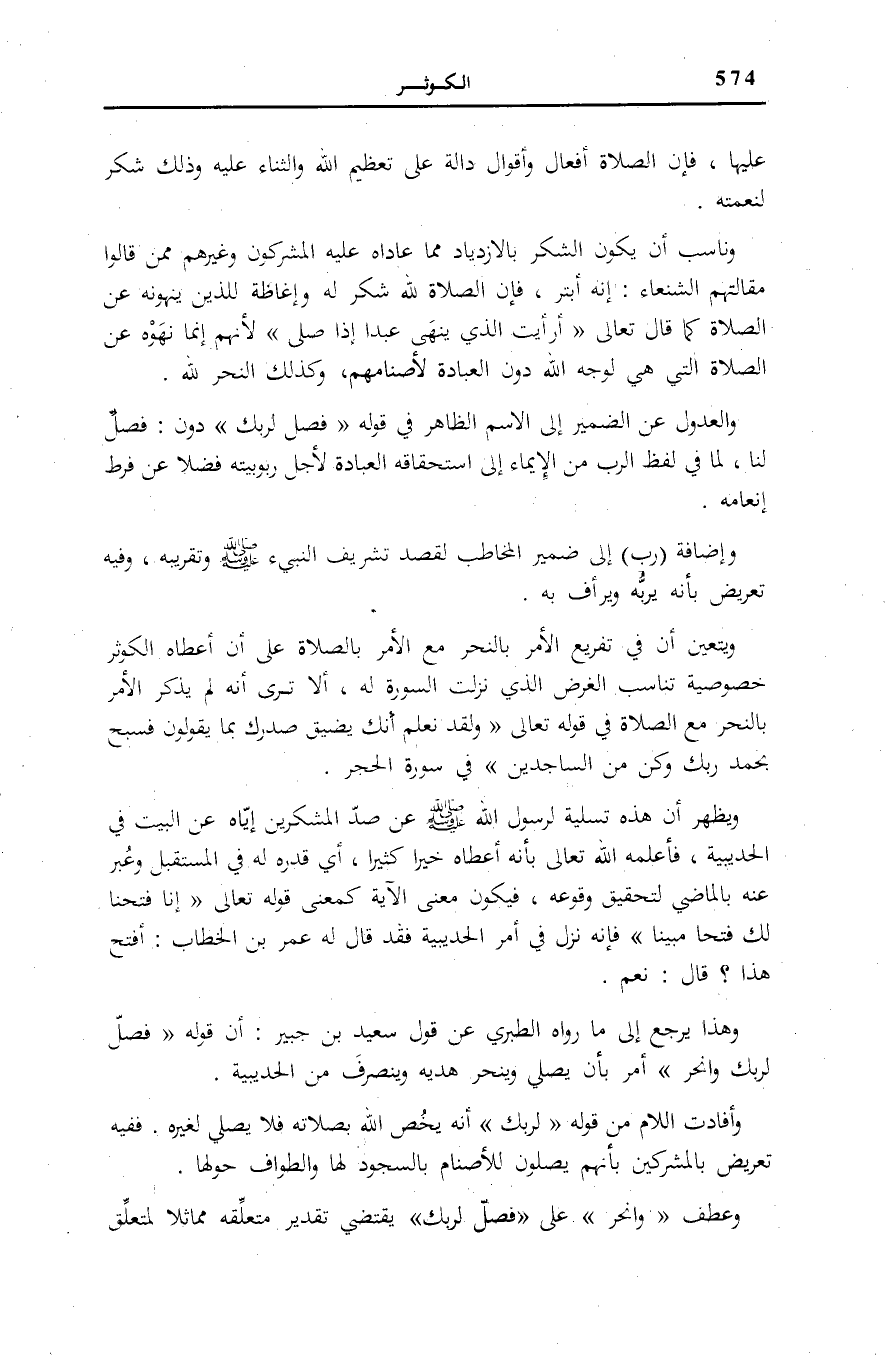 574
الكوثر
عليها ، فإن الصلاة أفعال وأقوال دالة على تعظيم الله والثناء عليه وذلك شكر
لنعمته .
وناسب أن يكون الشكر بالازدياد مما عاداه عليه المشركون وغيرهم ممن قالوا
مقالتهم الشنعاء : إنه أبتر ، فإن الصلاة لله شكر له وإغاظة للذين ينهونه عن
الصلاة كما قال تعالى « أرأيت الذي ينهَى عبدا إذا صلى » لأنهم إنما نهَوْه عن
الصلاة التي هي لوجه الله دون العبادة لأصنامهم، وكذلك النحر لله .
والعدول عن الضمير إلى الاسم الظاهر في قوله « فصل لربك » دون : فصلّ
لنا ، لما في لفظ الرب من الإيماء إلى استحقاقه العبادة لأجل ربوبيته فضلا عن فرط
إنعامه .
وإضافة (رب) إلى ضمير المخاطب لقصد تشريف النبيء ﷺ وتقريبه ، وفيه
تعريض بأنه يربُّه ويرأف به .
ويتعين أن في تفريع الأمر بالنحر مع الأمر بالصلاة على أن أعطاه الكوثر
خصوصية تناسب الغرض الذي نزلت السورة له ، ألا ترى أنه لم يذكر الأمر
بالنحر مع الصلاة في قوله تعالى « ولقد نعلم أنك يضيق صدرك بما يقولون فسبح
بحمد ربك وكن من الساجدين » في سورة الحجر .
ويظهر أن هذه تسلية لرسول الله ﷺ عن صدّ المشكرين إيّاه عن البيت في
الحديبية ، فأعلمه الله تعالى بأنه أعطاه خيرا كثيرا ، أي قدره له في المستقبل وعُبر
عنه بالماضي لتحقيق وقوعه ، فيكون معنى الآية كمعنى قوله تعالى « إنا فتحنا
لك فتحا مبينا » فإنه نزل في أمر الحديبية فقد قال له عمر بن الخطاب : أفتح
هذا ؟ قال : نعم .
وهذا يرجع إلى ما رواه الطبري عن قول سعيد بن جبير : أن قوله « فصلّ
لربك وانحر » أمر بأن يصلي وينحر هديه وينصرفَ من الحديبية .
وأفادت اللام من قوله « لربك » أنه يخُص الله بصلاته فلا يصلي لغيره . ففيه
تعريض بالمشركين بأنهم يصلون للأصنام بالسجود لها والطواف حولها .
وعطف « وانحر » على «فصلّ لربك» يقتضي تقدير متعلِّقه مماثلا لمتعلِّق